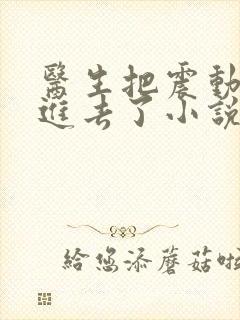 醫生把震動
進去了小說
給您添蘑菇啦